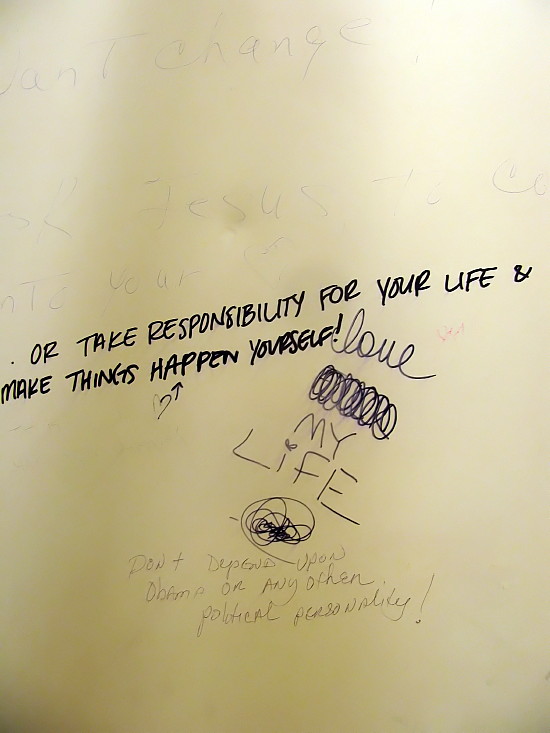 want change!
ask Jesus to co
into your
. OR TAKE RESPONSIBILITY FOR YOUR LIFE &
MAKE THINGS HAPPEN YOURSELF!
love
MY
LiFE
DON't DEPEND UPON
Obama OR ANY OtheR
political peRsonality!